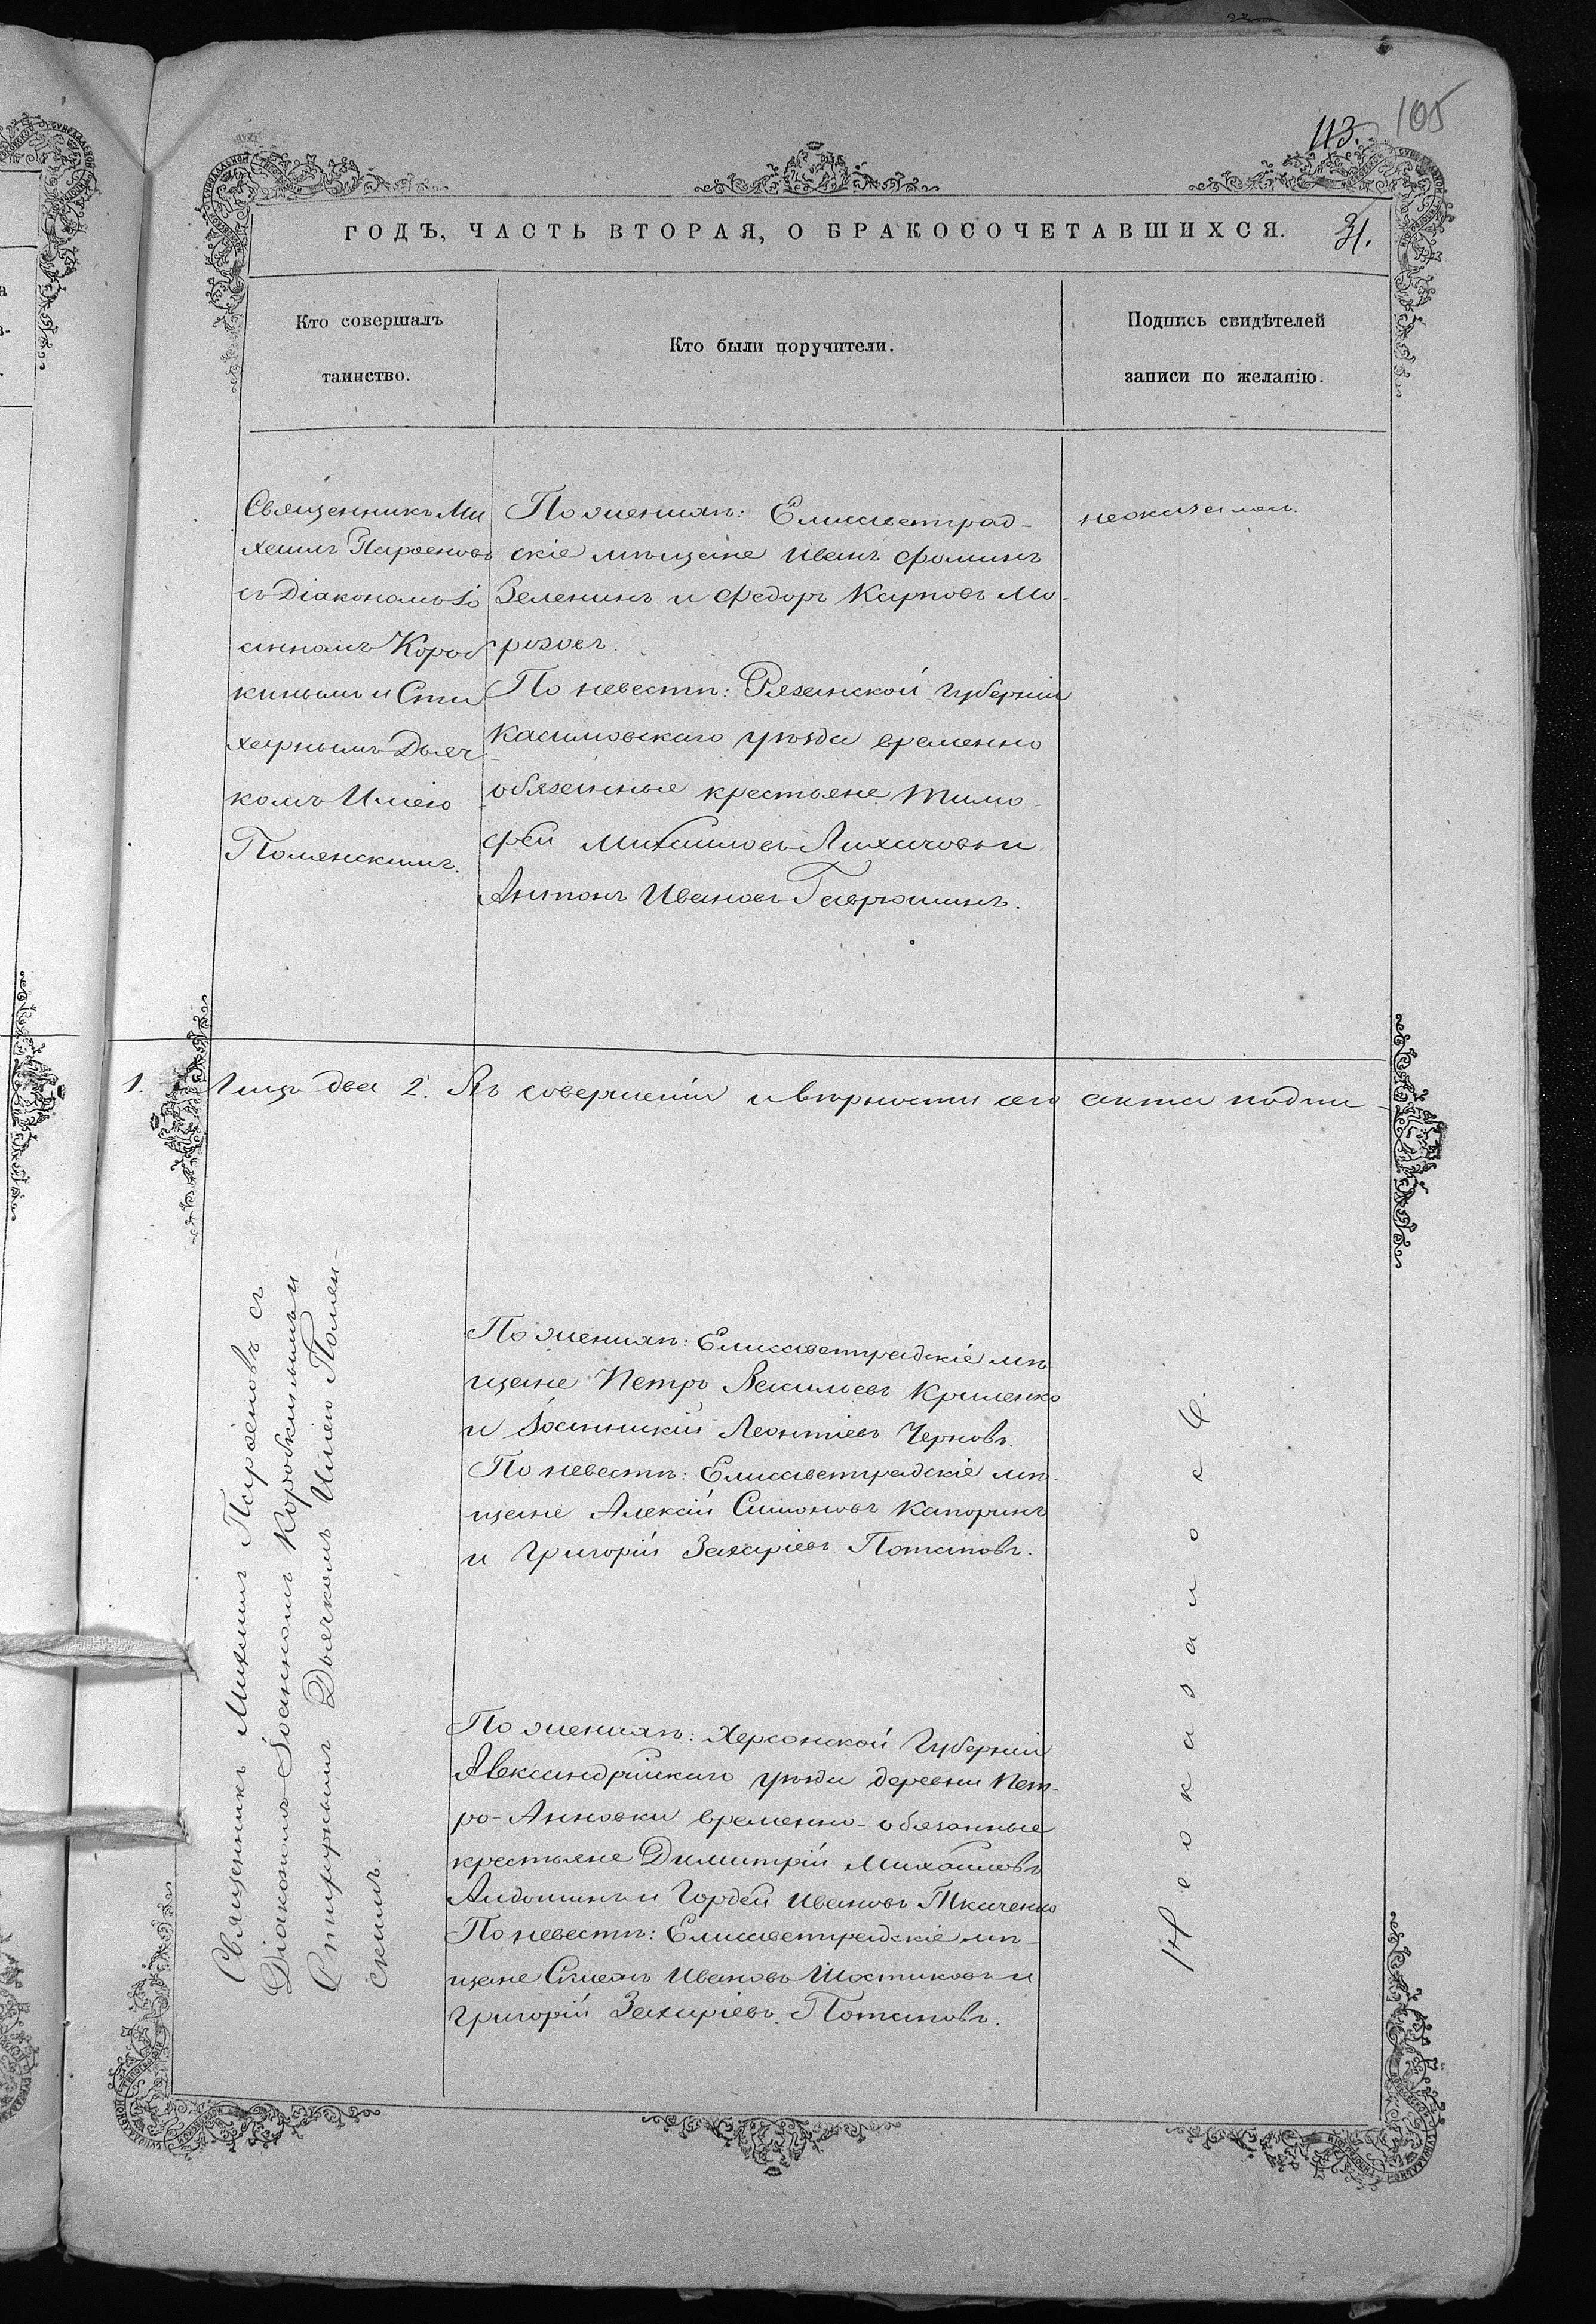 105
113.
ГОДЪ, ЧАСТЬ ВТОРАЯ, О БРАКОСОЧЕТАВШИХСЯ.
31.
Кто совершалъ
таинство.
Кто были поручители.
Подпись свидѣтелей
записи по желанію.
Священникъ Ми
хаилъ Парѳеновъ
съ Діакономъ Іо
анномъ Короб
кинымъ и Сти
харнымъ Дьяч
комъ Иліею
Поменскимъ.
По женихѣ: Елисаветград-
скіе мѣщане Иванъ Фоминъ
Зеленинъ и Федоръ Карповъ Мо-
розовъ.
По невестѣ: Рязанской Губерніи
Касимовскаго уѣзда временно
обязанные крестьяне Тимо-
фей Михаиловъ Лихачовъ и
Антонъ Ивановъ Гаврюшинъ.
1. Лицъ два 2. Въ совершеніи и вѣрности сего акта подпи-
Священникъ Михаилъ Парѳеновъ съ
Діакономъ Іоанномъ Коробкинымъ и
Стихарнымъ Дьячкомъ Иліею Помен-
скимъ.
По женихѣ: Елисаветградскіе мѣ
щане Петръ Василіевъ Криленко
и Іоанникій Леонтіевъ Черновъ.
По невестѣ: Елисаветградскіе мѣ-
щане Алексій Симоновъ Капоринъ
и Григорій Захаріевъ Потаповъ.
По женихѣ: Херсонской Губерніи
Александрійскаго уѣзда деревни Пет-
ро-Анновки временно-обязанные
крестьяне Димитрій Михаиловъ
Алдошинъ и Гордей Ивановъ Ткаченко
По невестѣ: Елисаветградскіе мѣ-
щане Симеонъ Ивановъ Шостиковъ и
Григорій Захаріевъ Потаповъ.
Неоказалось.